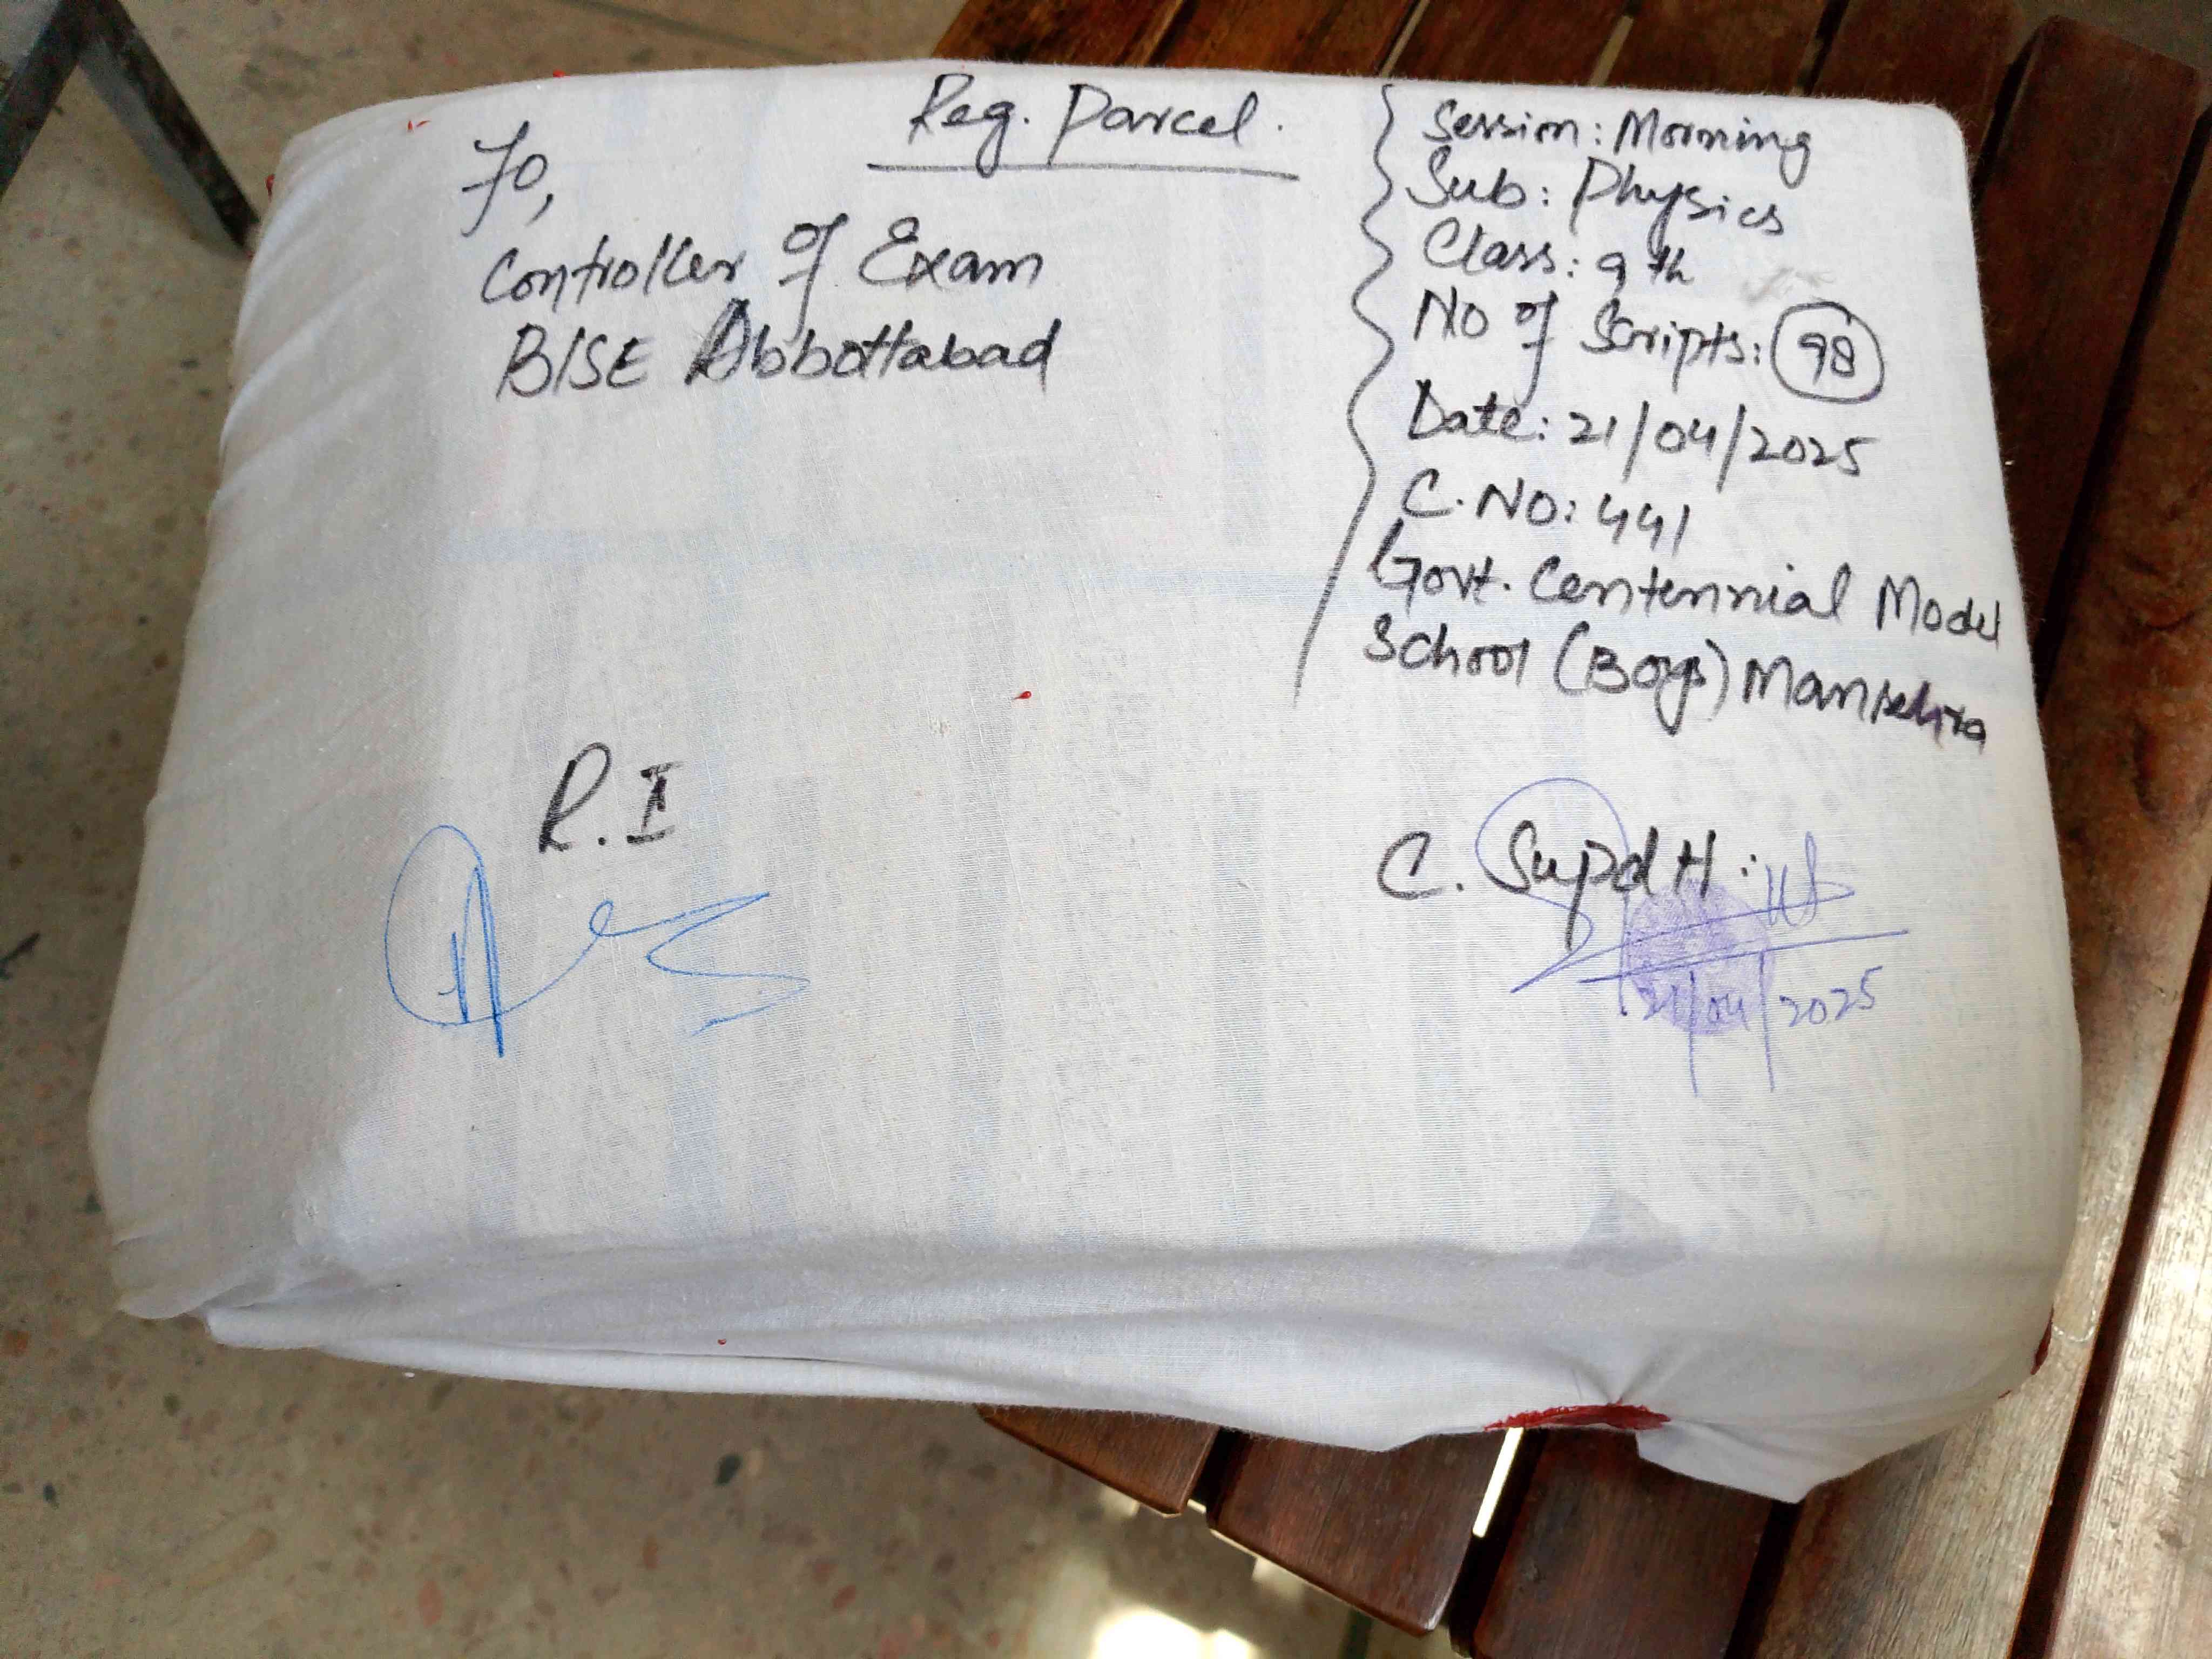 Reg. Parcel.
To,
Controller of Exam
BISE Abbottabad
Session: Morning
Sub: Physics
Class: 9th
No of Scripts: 98
Date: 21/04/2025
C.NO: 441
Govt. Centennial Model
School (Boys) Mansehra
R.I
C. Supdtt:
21/04/2025